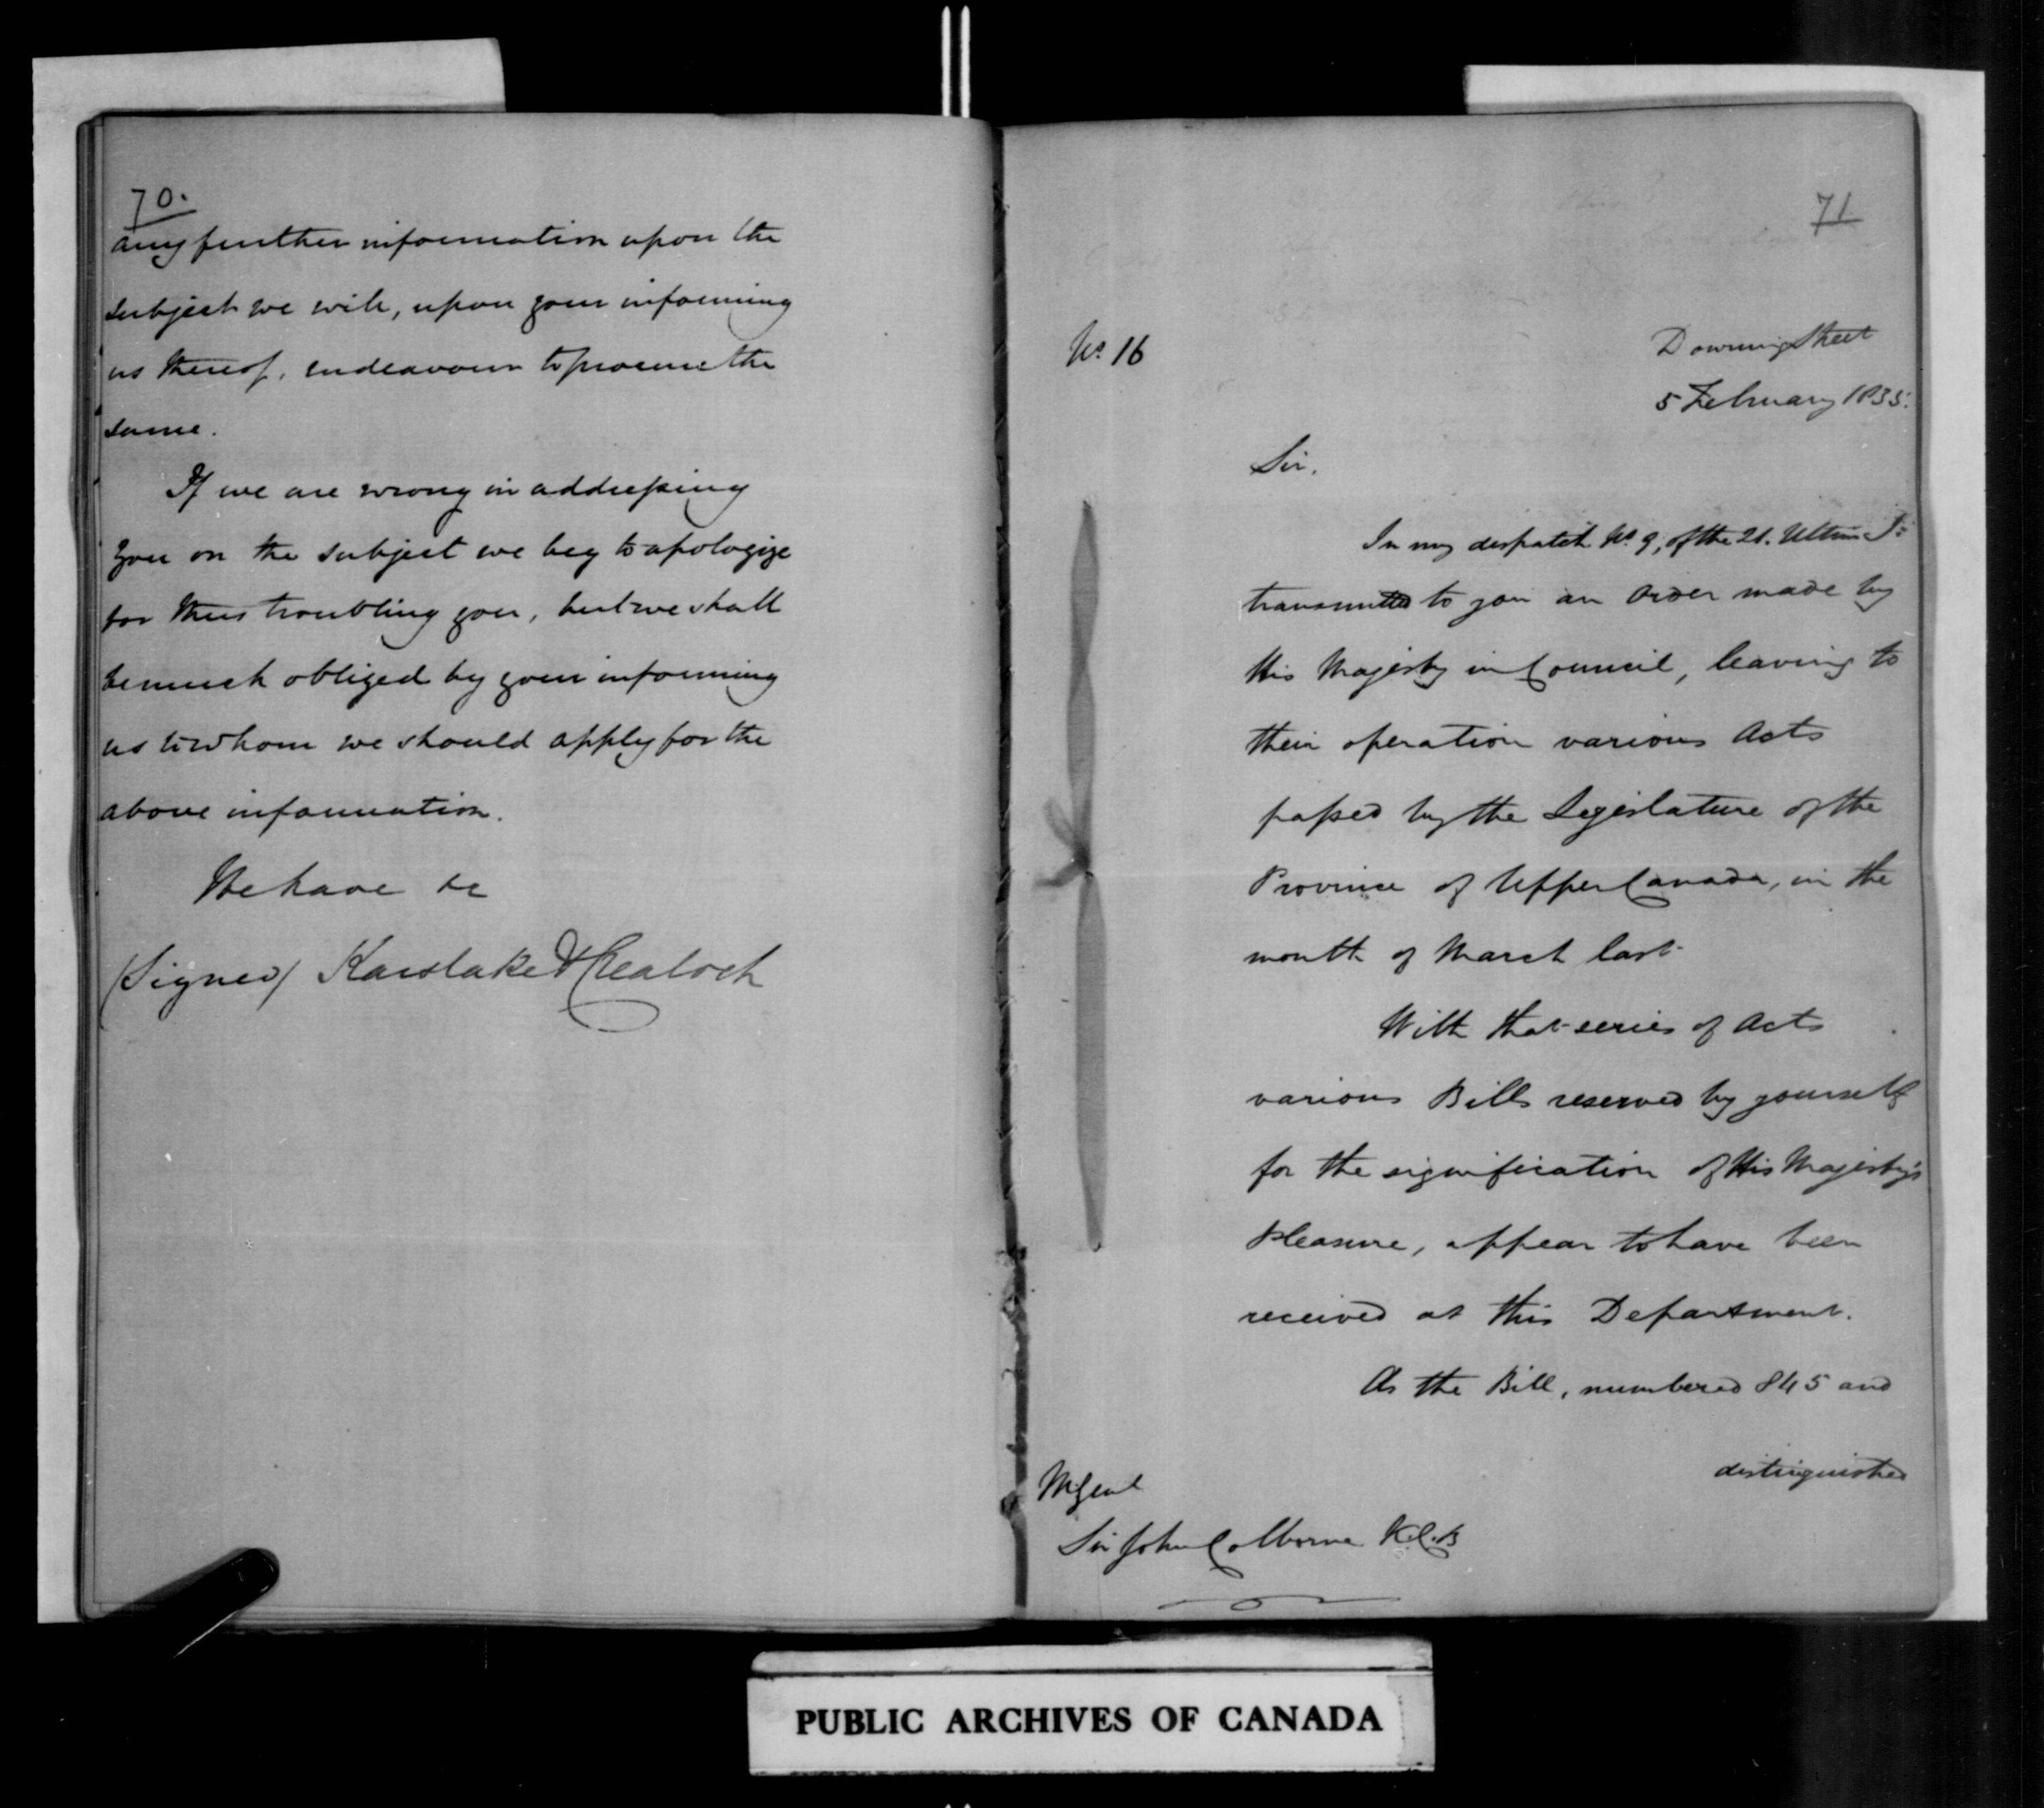 70.
any further information upon the
subject we will, upon your informing
us thereof, endeavour to procure the
same.
If we are wrong in addressing
you on the subject we beg to apologize
for thus troubling you, but we shall
be much obliged by your informing
us to whom we should apply for the
above information.
We have &c
(Signed) Karslake & Crealock
71
No 16
Downing Street
5 February 1835.
Sir,
In my despatch No 9, of the 21. Ultimo I
transmitted to you an Order made by
His Majesty in Council, leaving to
their operation various Acts
passed by the Legislature of the
Province of Upper Canada, in the
month of March last.
With that series of Acts
various Bills reserved by yourself
for the signification of His Majesty's
Pleasure, appear to have been
received at this Department.
As the Bill, numbered 845 and
distinguished
M Genl
Sir John Colborne K.C.B
PUBLIC ARCHIVES OF CANADA